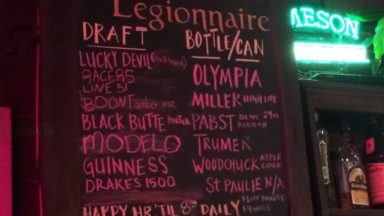 Legionnaire
DRAFT
LUCKY DEVIL
RACER5
LIVE 51
BOONT amber ale
BLACK BUTTE PORTER
MODELO
GUINNESS
DRAKES 1500
BOTTLE/CAN
OLYMPIA
MILLER HIGH LIFE
PABST
TRUMER
WOODCHUCK APPLE CIDER
ST PAULIE N/A
HAPPY HR 'TIL 8PM DAILY
MESON